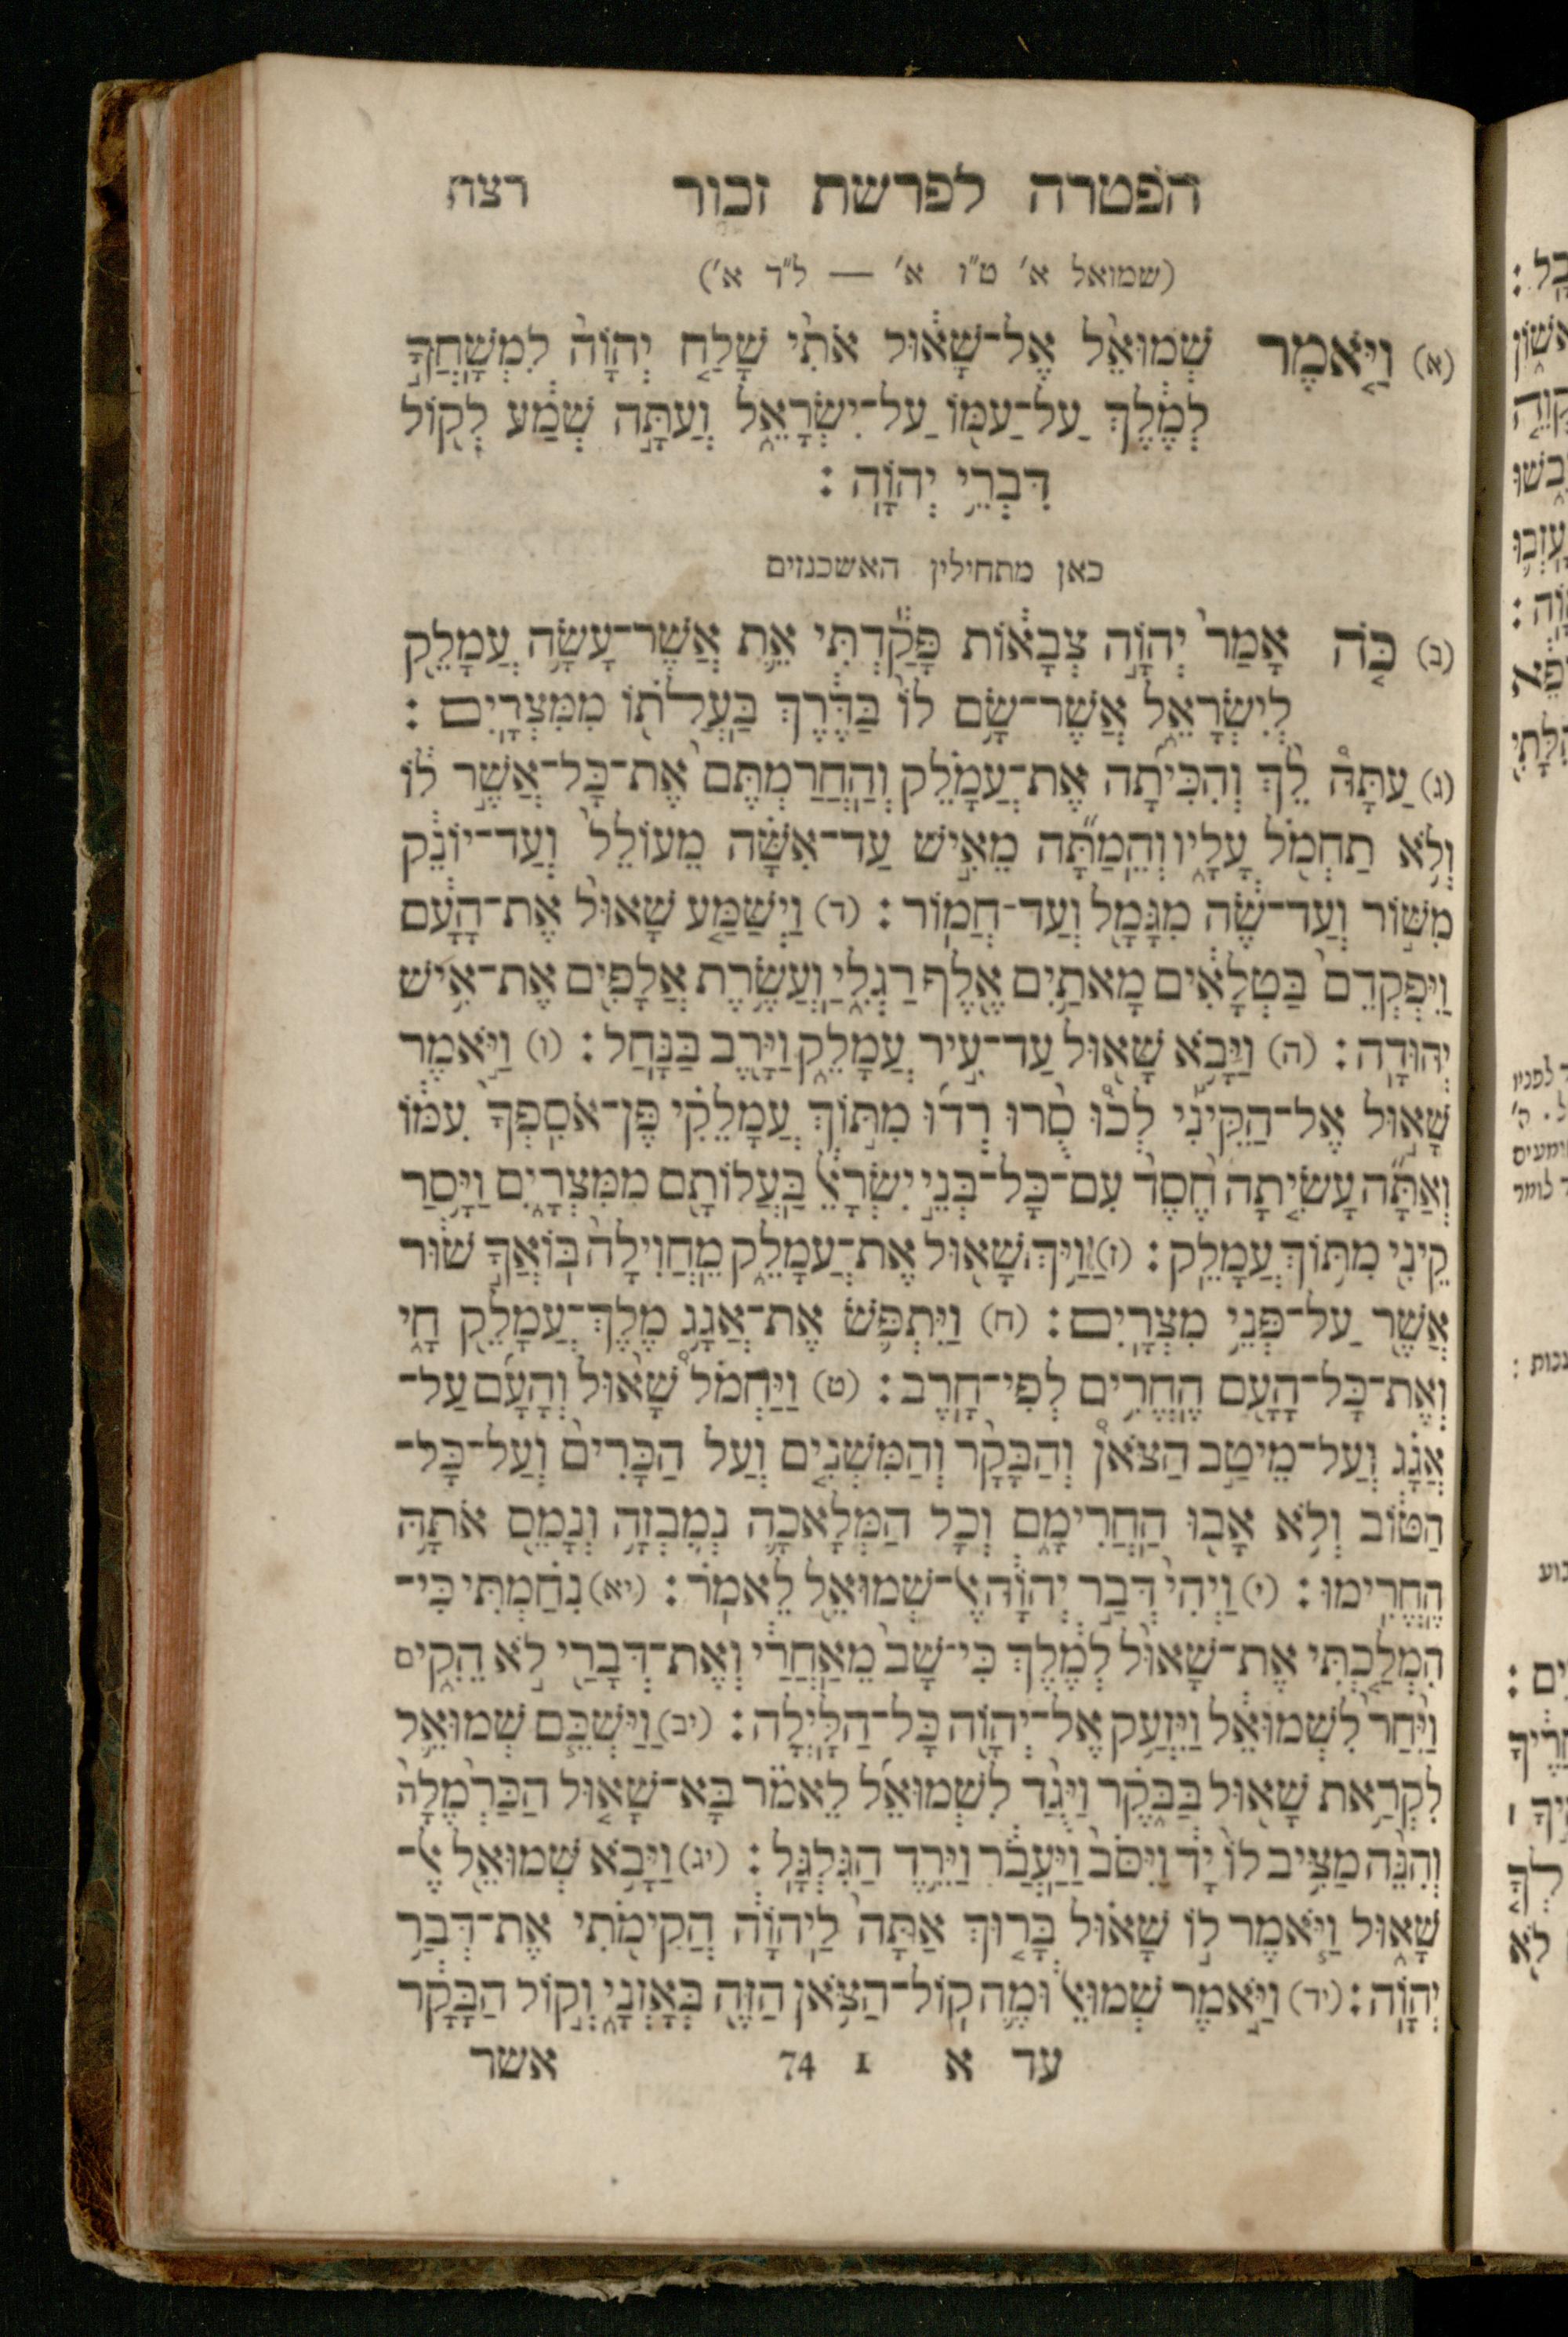 הפטרה לפרשת זכור רצח
(שמואל א׳ ט״ו א׳ — ל״ד א׳)
(א) וַיֹּאמֶר שְׁמוּאֵל אֶל־שָׁאוּל אֹתִי שָׁלַח יְהוָֹה לִמְשָׁחֲךָ
לְמֶלֶךְ עַל־עַמּוֹ עַל־יִשְׂרָאֵל וְעַתָּה שְׁמַע לְקוֹל
דִּבְרֵי יְהוָֹה :
כאן מתחילין האשכנזים
(ב) כֹּה אָמַר יְהוָֹה צְבָאוֹת פָּקַדְתִּי אֵת אֲשֶׁר־עָשָׂה עֲמָלֵק
לְיִשְׂרָאֵל אֲשֶׁר־שָׂם לוֹ בַּדֶּרֶךְ בַּעֲלֹתוֹ מִמִּצְרָיִם :
(ג) עַתָּה לֵךְ וְהִכִּיתָה אֶת־עֲמָלֵק וְהַחֲרַמְתֶּם אֶת־כָּל־אֲשֶׁר לוֹ
וְלֹא תַחְמֹל עָלָיו וְהֵמַתָּה מֵאִישׁ עַד־אִשָּׁה מֵעוֹלֵל וְעַד־יוֹנֵק
מִשּׁוֹר וְעַד־שֶׂה מִגָּמָל וְעַד־חֲמוֹר : (ד) וַיְשַׁמַּע שָׁאוּל אֶת־הָעָם
וַיִּפְקְדֵם בַּטְּלָאִים מָאתַיִם אֶלֶף רַגְלִי וַעֲשֶׂרֶת אֲלָפִים אֶת־אִישׁ
יְהוּדָה : (ה) וַיָּבֹא שָׁאוּל עַד־עִיר עֲמָלֵק וַיָּרֶב בַּנָּחַל : (ו) וַיֹּאמֶר
שָׁאוּל אֶל־הַקֵּינִי לְכוּ סֻרוּ רְדוּ מִתּוֹךְ עֲמָלֵקִי פֶּן־אֹסִפְךָ עִמּוֹ
וְאַתָּה עָשִׂיתָה חֶסֶד עִם־כָּל־בְּנֵי יִשְׂרָאֵל בַּעֲלוֹתָם מִמִּצְרָיִם וַיָּסַר
קֵינִי מִתּוֹךְ עֲמָלֵק : (ז) וַיַּךְ שָׁאוּל אֶת־עֲמָלֵק מֵחֲוִילָה בּוֹאֲךָ שׁוּר
אֲשֶׁר עַל־פְּנֵי מִצְרָיִם : (ח) וַיִּתְפֹּשׂ אֶת־אֲגַג מֶלֶךְ־עֲמָלֵק חָי
וְאֶת־כָּל־הָעָם הֶחֱרִים לְפִי־חָרֶב : (ט) וַיַּחְמֹל שָׁאוּל וְהָעָם עַל־
אֲגָג וְעַל־מֵיטַב הַצֹּאן וְהַבָּקָר וְהַמִּשְׁנִים וְעַל הַכָּרִים וְעַל־כָּל־
הַטּוֹב וְלֹא אָבוּ הַחֲרִימָם וְכָל הַמְּלָאכָה נְמִבְזָה וְנָמֵס אֹתָהּ
הֶחֱרִימוּ : (י) וַיְהִי דְּבַר יְהוָֹה אֶל־שְׁמוּאֵל לֵאמֹר : (יא) נִחַמְתִּי כִּי־
הִמְלַכְתִּי אֶת־שָׁאוּל לְמֶלֶךְ כִּי־שָׁב מֵאַחֲרַי וְאֶת־דְּבָרַי לֹא הֵקִים
וַיִּחַר לִשְׁמוּאֵל וַיִּזְעַק אֶל־יְהוָֹה כָּל־הַלָּיְלָה : (יב) וַיַּשְׁכֵּם שְׁמוּאֵל
לִקְרַאת שָׁאוּל בַּבֹּקֶר וַיֻּגַּד לִשְׁמוּאֵל לֵאמֹר בָּא־שָׁאוּל הַכַּרְמֶלָה
וְהִנֵּה מַצִּיב לוֹ יָד וַיִּסֹּב וַיַּעֲבֹר וַיֵּרֶד הַגִּלְגָּל : (יג) וַיָּבֹא שְׁמוּאֵל אֶל־
שָׁאוּל וַיֹּאמֶר לוֹ שָׁאוּל בָּרוּךְ אַתָּה לַיהוָֹה הֲקִימֹתִי אֶת־דְּבַר
יְהוָֹה : (יד) וַיֹּאמֶר שְׁמוּאֵל וּמֶה קוֹל־הַצֹּאן הַזֶּה בְּאָזְנָי וְקוֹל הַבָּקָר
עד א 1 74 אשר